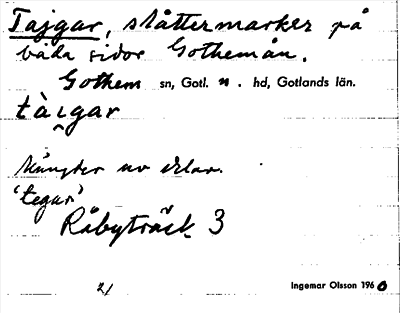 Tajgar, slåttermarker på
båda sidor Gotheman.
Gothem sn, Gotl. n. hd, Gotlands län.
tàigar
av
'tegar'
Råbyträsk 3
21
Ingemar Olsson 1960